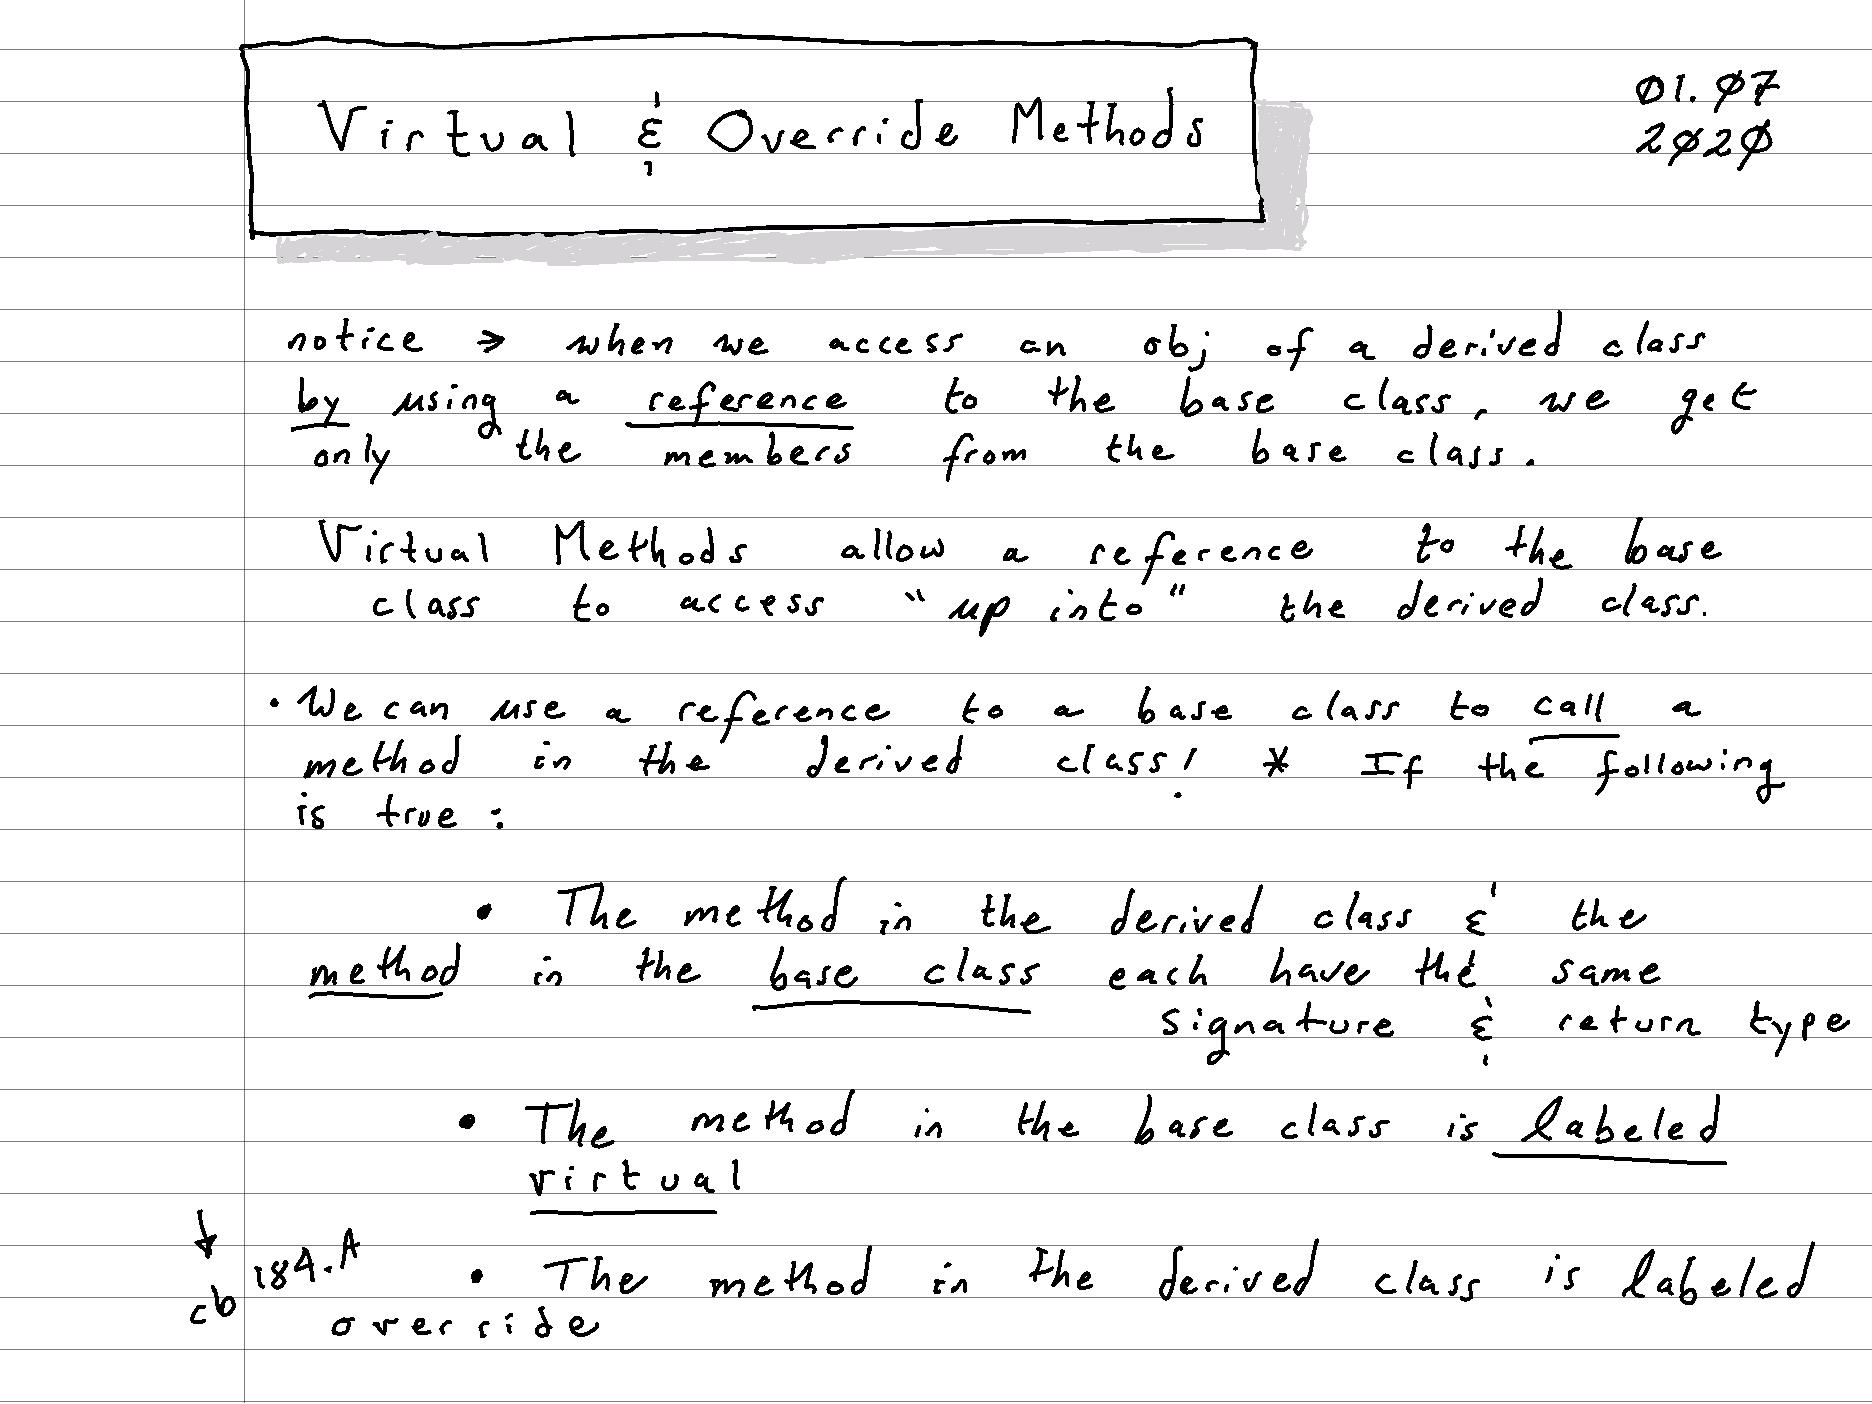 Virtual & Override Methods
01.07
2020
notice → when we access an obj of a derived class
by using a reference to the base class, we get
only the members from the base class.
Virtual Methods allow a reference to the base
class to access "up into" the derived class.
• We can use a reference to a base class to call a
method in the derived class! * If the following
is true:
• The method in the derived class & the
method in the base class each have the same
signature & return type
• The method in the base class is labeled
virtual
↓
cb 184.A
• The method in the derived class is labeled
override